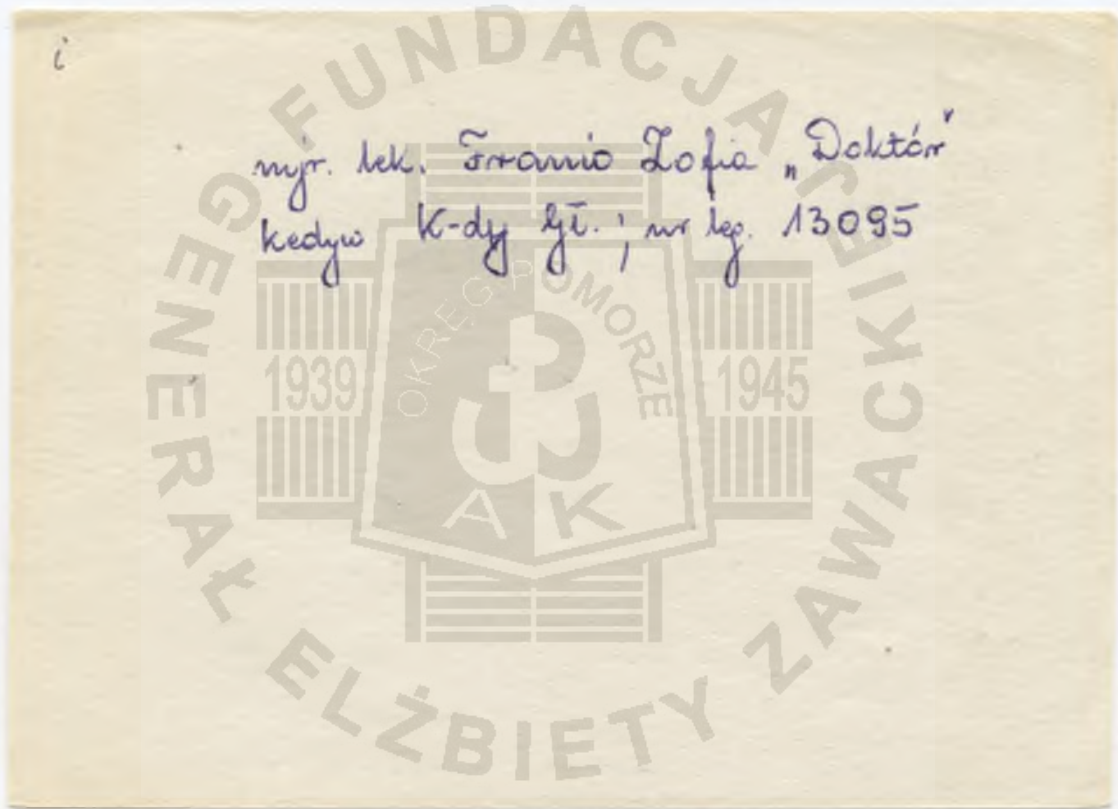 i
mjr. lek. Franio Zofia „Doktór”
kedyw K-dy Gł.; nr leg. 13095
FUNDACJA
GENERAŁ ELŻBIETY ZAWACKIEJ
OKRĘG POMORZE
1939
1945
A K